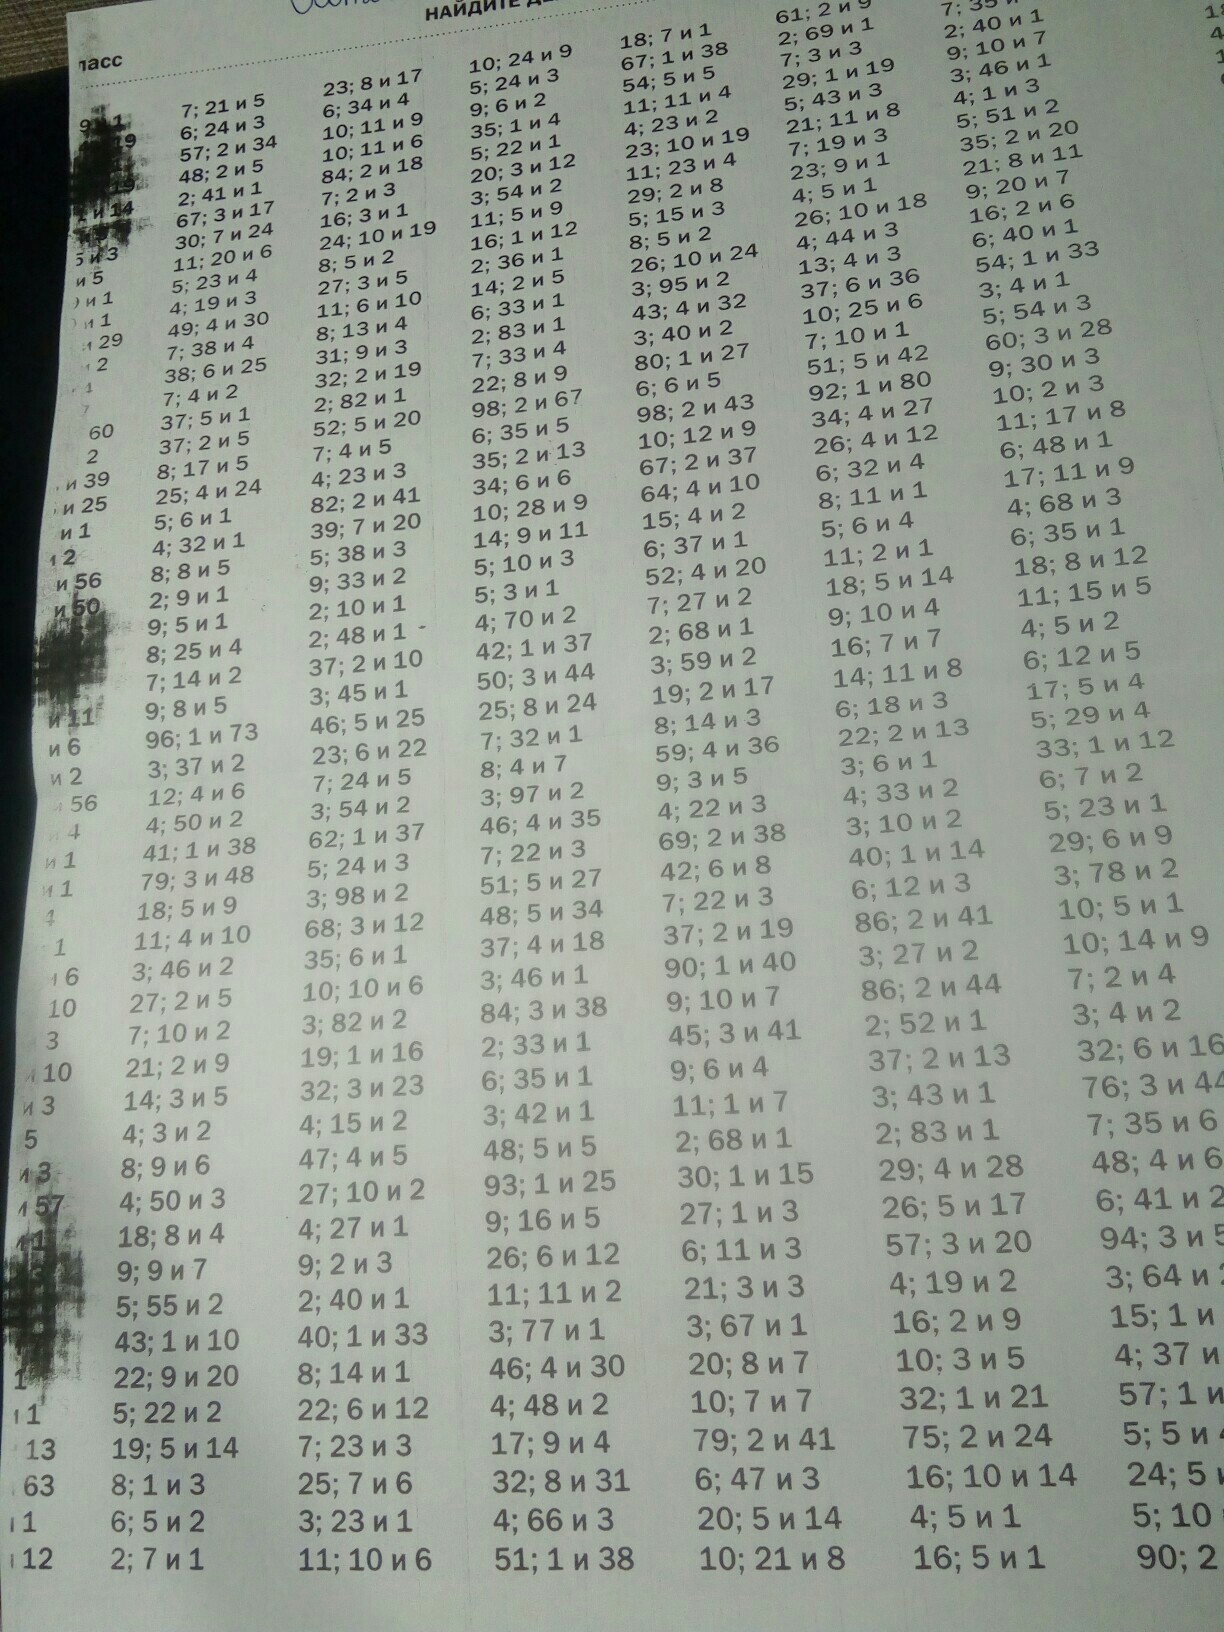 НАЙДИТЕ
ласс
7; 21 и 5
6; 24 и 3
57; 2 и 34
48; 2 и 5
2; 41 и 1
67; 3 и 17
30; 7 и 24
11; 20 и 6
5; 23 и 4
4; 19 и 3
49; 4 и 30
7; 38 и 4
38; 6 и 25
7; 4 и 2
37; 5 и 1
37; 2 и 5
8; 17 и 5
25; 4 и 24
5; 6 и 1
4; 32 и 1
8; 8 и 5
2; 9 и 1
9; 5 и 1
8; 25 и 4
7; 14 и 2
9; 8 и 5
96; 1 и 73
3; 37 и 2
12; 4 и 6
4; 50 и 2
41; 1 и 38
79; 3 и 48
18; 5 и 9
11; 4 и 10
3; 46 и 2
27; 2 и 5
7; 10 и 2
21; 2 и 9
14; 3 и 5
4; 3 и 2
8; 9 и 6
4; 50 и 3
18; 8 и 4
9; 9 и 7
5; 55 и 2
43; 1 и 10
22; 9 и 20
5; 22 и 2
19; 5 и 14
8; 1 и 3
6; 5 и 2
2; 7 и 1
23; 8 и 17
6; 34 и 4
10; 11 и 9
10; 11 и 6
84; 2 и 18
7; 2 и 3
16; 3 и 1
24; 10 и 19
8; 5 и 2
27; 3 и 5
11; 6 и 10
8; 13 и 4
31; 9 и 3
32; 2 и 19
2; 82 и 1
52; 5 и 20
7; 4 и 5
4; 23 и 3
82; 2 и 41
39; 7 и 20
5; 38 и 3
9; 33 и 2
2; 10 и 1
2; 48 и 1
37; 2 и 10
3; 45 и 1
46; 5 и 25
23; 6 и 22
7; 24 и 5
3; 54 и 2
62; 1 и 37
5; 24 и 3
3; 98 и 2
68; 3 и 12
35; 6 и 1
10; 10 и 6
3; 82 и 2
19; 1 и 16
32; 3 и 23
4; 15 и 2
47; 4 и 5
27; 10 и 2
4; 27 и 1
9; 2 и 3
2; 40 и 1
40; 1 и 33
8; 14 и 1
22; 6 и 12
7; 23 и 3
25; 7 и 6
3; 23 и 1
11; 10 и 6
10; 24 и 9
5; 24 и 3
9; 6 и 2
35; 1 и 4
5; 22 и 1
20; 3 и 12
3; 54 и 2
11; 5 и 9
16; 1 и 12
2; 36 и 1
14; 2 и 5
6; 33 и 1
2; 83 и 1
7; 33 и 4
22; 8 и 9
98; 2 и 67
6; 35 и 5
35; 2 и 13
34; 6 и 6
10; 28 и 9
14; 9 и 11
5; 10 и 3
5; 3 и 1
4; 70 и 2
42; 1 и 37
50; 3 и 44
25; 8 и 24
7; 32 и 1
8; 4 и 7
3; 97 и 2
46; 4 и 35
7; 22 и 3
51; 5 и 27
48; 5 и 34
37; 4 и 18
3; 46 и 1
84; 3 и 38
2; 33 и 1
6; 35 и 1
3; 42 и 1
48; 5 и 5
93; 1 и 25
9; 16 и 5
26; 6 и 12
11; 11 и 2
3; 77 и 1
46; 4 и 30
4; 48 и 2
17; 9 и 4
32; 8 и 31
4; 66 и 3
51; 1 и 38
18; 7 и 1
67; 1 и 38
54; 5 и 5
11; 11 и 4
4; 23 и 2
23; 10 и 19
11; 23 и 4
29; 2 и 8
5; 15 и 3
8; 5 и 2
26; 10 и 24
3; 95 и 2
43; 4 и 32
3; 40 и 2
80; 1 и 27
6; 6 и 5
98; 2 и 43
10; 12 и 9
67; 2 и 37
64; 4 и 10
15; 4 и 2
6; 37 и 1
52; 4 и 20
7; 27 и 2
2; 68 и 1
3; 59 и 2
19; 2 и 17
8; 14 и 3
59; 4 и 36
9; 3 и 5
4; 22 и 3
69; 2 и 38
42; 6 и 8
7; 22 и 3
37; 2 и 19
90; 1 и 40
9; 10 и 7
45; 3 и 41
9; 6 и 4
11; 1 и 7
2; 68 и 1
30; 1 и 15
27; 1 и 3
6; 11 и 3
21; 3 и 3
3; 67 и 1
20; 8 и 7
10; 7 и 7
79; 2 и 41
6; 47 и 3
20; 5 и 14
10; 21 и 8
61; 2 и 9
2; 69 и 1
7; 3 и 3
29; 1 и 19
5; 43 и 3
21; 11 и 8
7; 19 и 3
23; 9 и 1
4; 5 и 1
26; 10 и 18
4; 44 и 3
13; 4 и 3
37; 6 и 36
10; 25 и 6
7; 10 и 1
51; 5 и 42
92; 1 и 80
34; 4 и 27
26; 4 и 12
6; 32 и 4
8; 11 и 1
5; 6 и 4
11; 2 и 1
18; 5 и 14
9; 10 и 4
16; 7 и 7
14; 11 и 8
6; 18 и 3
22; 2 и 13
3; 6 и 1
4; 33 и 2
3; 10 и 2
40; 1 и 14
6; 12 и 3
86; 2 и 41
3; 27 и 2
86; 2 и 44
2; 52 и 1
37; 2 и 13
3; 43 и 1
2; 83 и 1
29; 4 и 28
26; 5 и 17
57; 3 и 20
4; 19 и 2
16; 2 и 9
10; 3 и 5
32; 1 и 21
75; 2 и 24
16; 10 и 14
4; 5 и 1
16; 5 и 1
2; 40 и 1
9; 10 и 7
3; 46 и 1
4; 1 и 3
5; 51 и 2
35; 2 и 20
21; 8 и 11
9; 20 и 7
16; 2 и 6
6; 40 и 1
54; 1 и 33
3; 4 и 1
5; 54 и 3
60; 3 и 28
9; 30 и 3
10; 2 и 3
11; 17 и 8
6; 48 и 1
17; 11 и 9
4; 68 и 3
6; 35 и 1
18; 8 и 12
11; 15 и 5
4; 5 и 2
6; 12 и 5
17; 5 и 4
5; 29 и 4
33; 1 и 12
6; 7 и 2
5; 23 и 1
29; 6 и 9
3; 78 и 2
10; 5 и 1
10; 14 и 9
7; 2 и 4
3; 4 и 2
32; 6 и 16
76; 3 и 44
7; 35 и 6
48; 4 и 6
6; 41 и 2
94; 3 и 5
3; 64 и
15; 1 и
4; 37 и
57; 1 и
5; 5 и
24; 5
5; 10
90; 2